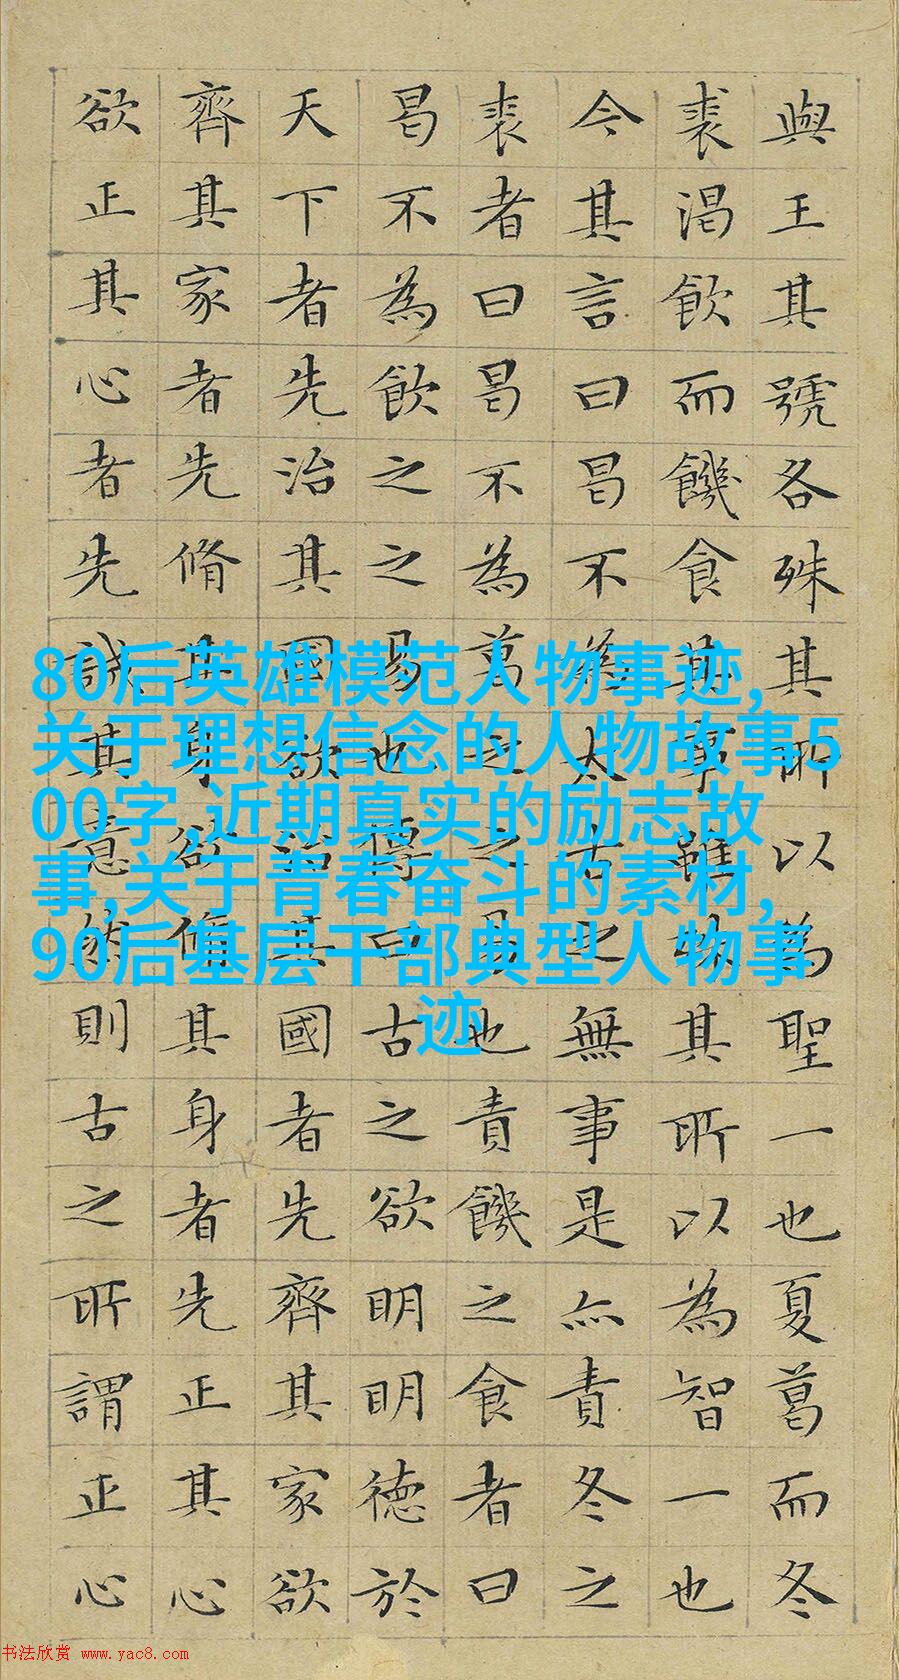 與王其號各殊其所以為聖一也夏葛而冬
裘渴飲而饑食其事雖殊其所以為智一也
今其言曰曷不為太古之無事是亦責冬之
裘者曰曷不為葛之之易也責饑之食者曰
曷不為飲之之易也傳曰古之欲明明德於
天下者先治其國欲治其國者先齊其家欲
齊其家者先脩其身欲脩其身者先正其心
欲正其心者先誠其意然則古之所謂正心
80后英雄模范人物事迹,
关于理想信念的人物故事5
00字,近期真实的励志故
事,关于青春奋斗的素材,
90后基层干部典型人物事
迹
书法欣赏 www.yac8.com